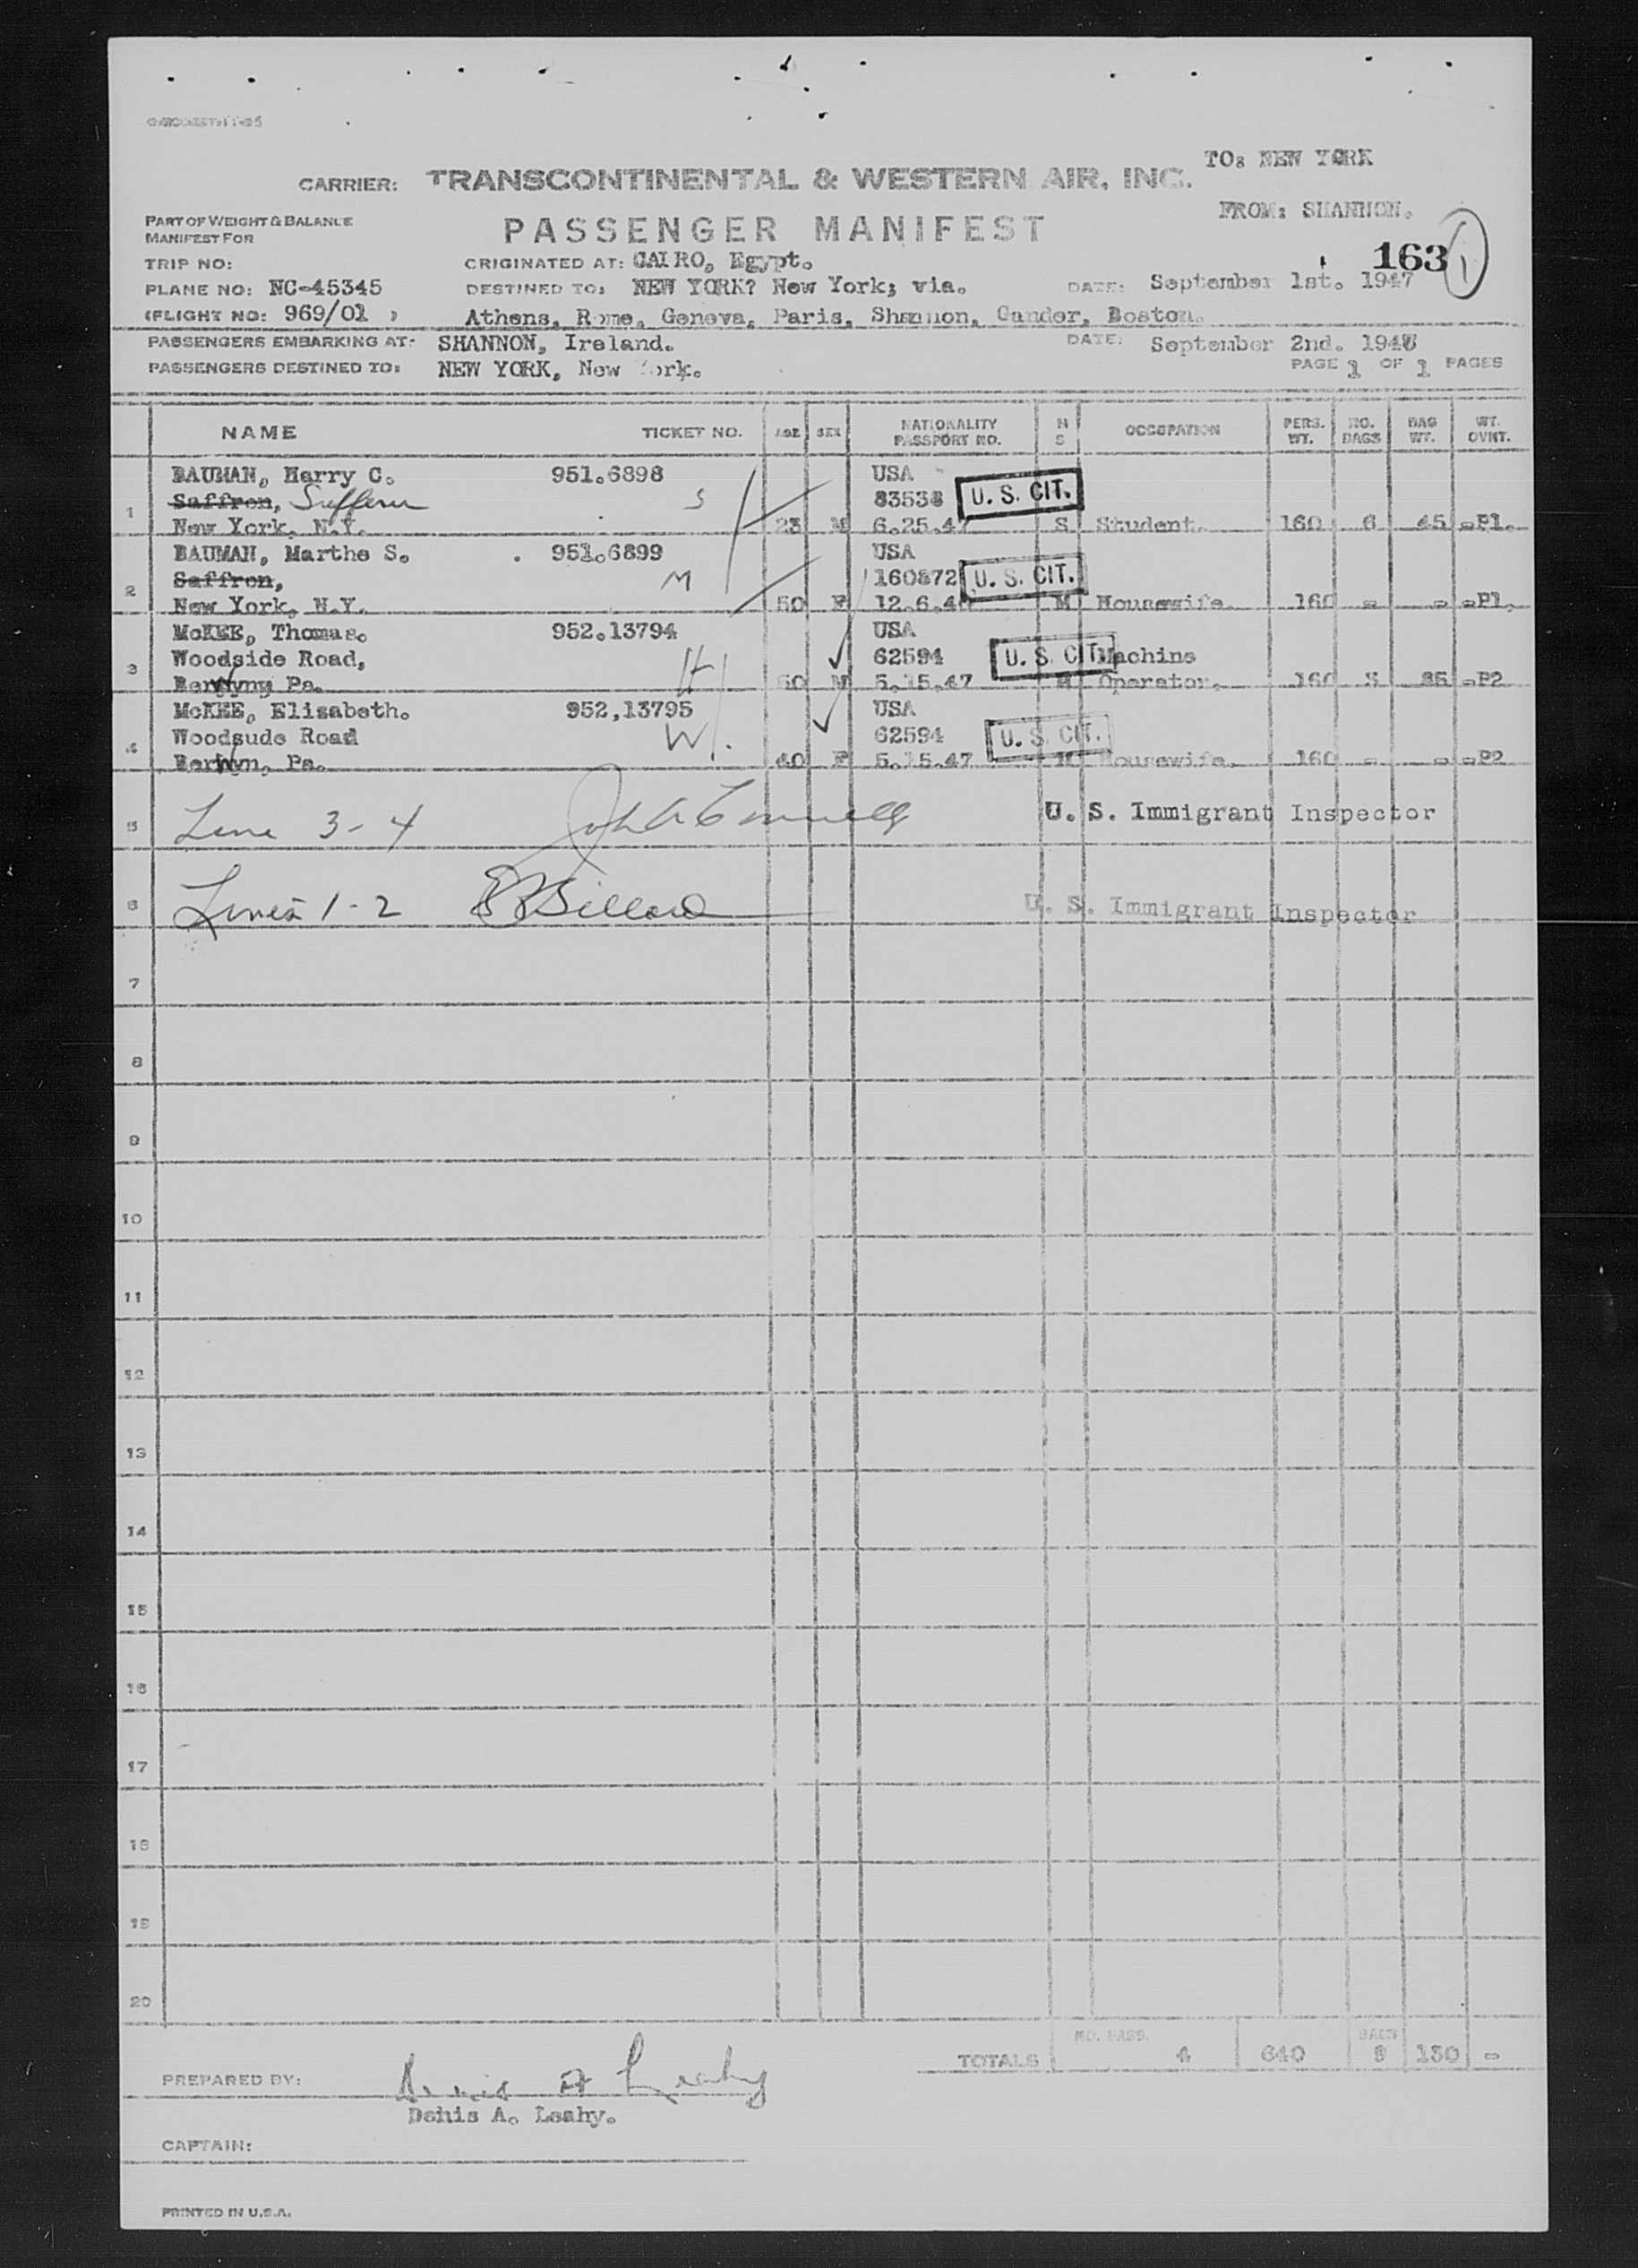 TO: NEW YORK
CARRIER: TRANSCONTINENTAL & WESTERN AIR, INC.
FROM: SHANNON.
PART OF WEIGHT & BALANCE
MANIFEST FOR
PASSENGER MANIFEST
163 1
TRIP NO:
ORIGINATED AT: CAIRO, Egypt.
PLANE NO: NC-45345
DESTINED TO: NEW YORK? New York; via.
DATE: September 1st. 1947
(FLIGHT NO: 969/01 )
Athens, Rome, Geneva, Paris, Shannon, Gander, Boston.
PASSENGERS EMBARKING AT: SHANNON, Ireland.
DATE: September 2nd. 194
PASSENGERS DESTINED TO: NEW YORK, New York.
PAGE 1 OF 1 PAGES
NAME TICKET NO. AGE SEX NATIONALITY PASSPORT NO. M S OCCUPATION PERS. WT. NO. BAGS BAG WT. WT. OVNT.
BAUMAN, Harry C. 951.6898 USA
Saffron, Suffern S 83538 U. S. CIT.
1 New York, N.Y. 23 M 6.25.47 S Student. 160 6 45 -P1.
BAUMAN, Marthe S. 951.6899 USA
2 Saffron, M 160872 U. S. CIT.
New York, N.Y. 50 F 12.6.46 M Housewife. 160 - - -P1.
McKEE, Thomas. 952.13794 USA
3 Woodside Road, H 62594 U. S. CIT. Machine
Berwyn, Pa. 50 M 5.15.47 M Operator. 160 3 85 -P2
McKEE, Elizabeth. 952,13795 USA
4 Woodsude Road W 62594 U. S. CIT.
Berwyn, Pa. 40 F 5.15.47 M Housewife. 160 - - -P2
5 Line 3-4 U. S. Immigrant Inspector
6 Lines 1-2 U. S. Immigrant Inspector
7
8
9
10
11
12
13
14
15
16
17
18
19
20
TOTALS NO. PASS. 4 640 BAGS 9 130 -
PREPARED BY: Denis A Leahy
Denis A. Leahy.
CAPTAIN:
PRINTED IN U.S.A.